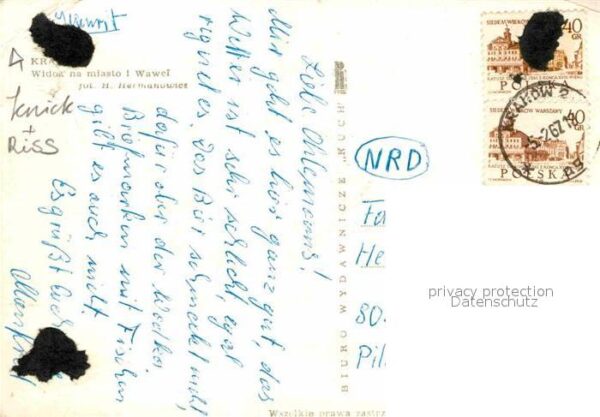 KRA
Widok na miasto i Wawel
fot. H. Hermanowicz
Knick
+
RISS
Liebe
Mir geht es hier ganz gut, das
Wetter ist sehr schlecht, egal
Das Bier schmeckt nicht,
dafür aber der Wodka
Briefmarken mit Fischen
gibt es auch nicht
Es grüßt Euch
BIURO WYDAWNICZE "RUCH"
NRD
Fa
He
80.
Pil.
SIEDEM WIEKÓW WARSZAWY
40
GR
POLSKA
SIEDEM WIEKÓW WARSZAWY
40
GR
POLSKA
KRAKÓW 2
-5-2 67-18
privacy protection
Datenschutz
Wszelkie prawa zastrz